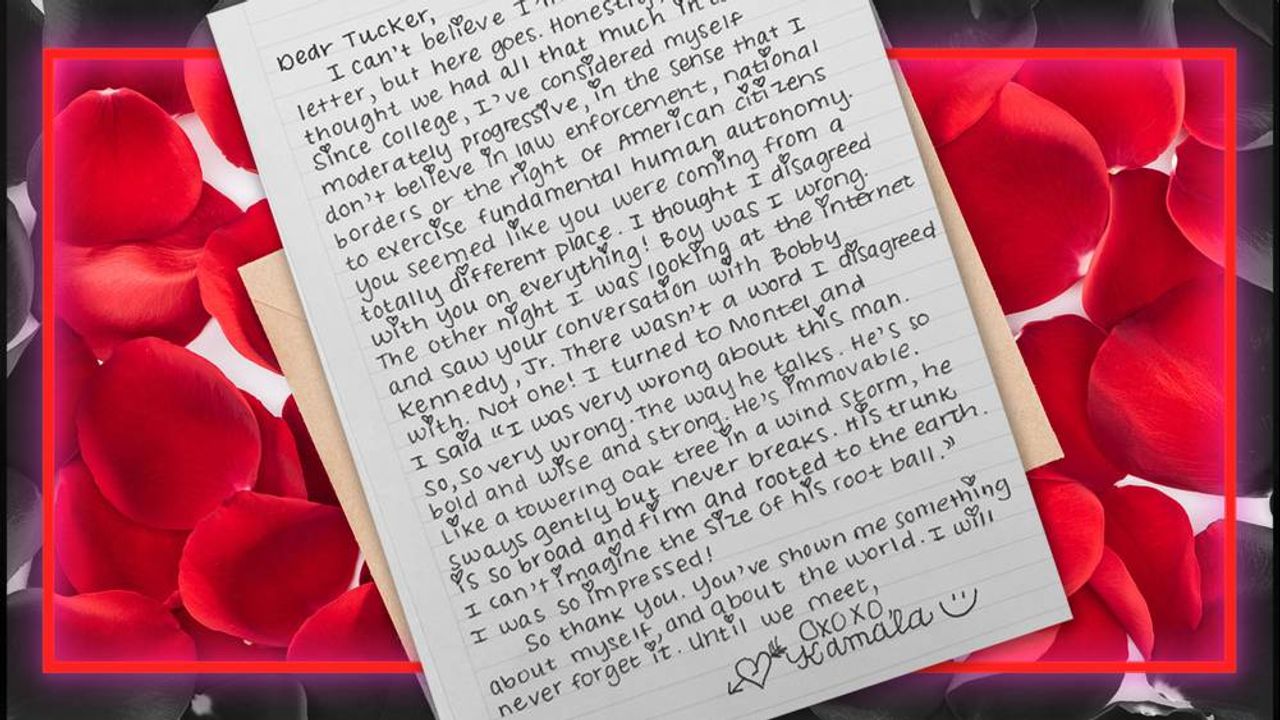 Dear Tucker,
I can't believe I'm
letter, but here goes. Honestly,
thought we had all that much in
since college, I've considered myself
moderately progressive, in the sense that I
don't believe in law enforcement, national
borders or the right of American citizens
to exercise fundamental human autonomy.
you seemed like you were coming from a
totally different place. I thought I disagreed
with you on everything! Boy was I wrong.
The other night I was looking at the internet
and saw your conversation with Bobby
Kennedy, Jr. There wasn't a word I disagreed
with. Not one! I turned to Montel and
I said "I was very wrong about this man.
So, so very wrong. The way he talks. He's so
bold and wise and strong. He's immovable.
Like a towering oak tree in a wind storm, he
sways gently but never breaks. His trunk
is so broad and firm and rooted to the earth.
I can't imagine the size of his root ball."
I was so impressed!
So thank you. You've shown me something
about myself, and about the world. I will
never forget it. Until we meet,
OXOXO,
Kamala